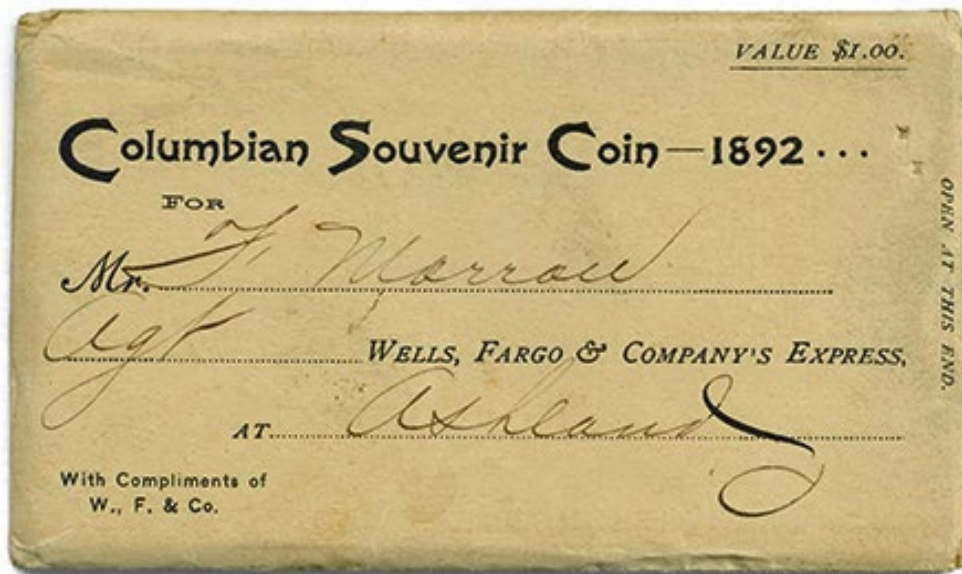 VALUE $1.00.
Columbian Souvenir Coin—1892 ...
FOR
Mr. F Morrow
Agt WELLS, FARGO & COMPANY'S EXPRESS,
AT Ashland
With Compliments of
W., F. & Co.
OPEN AT THIS END.